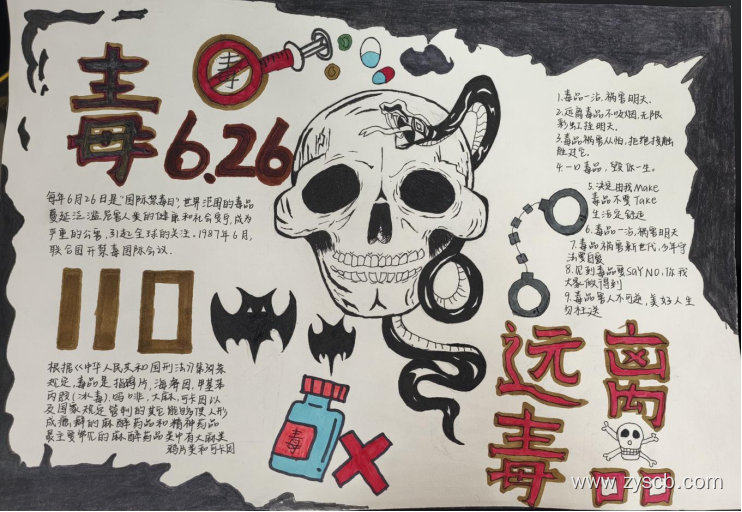 毒
6.26
毒
每年6月26日是"国际禁毒日",世界范围的毒品
蔓延泛滥危害人类的健康和社会安宁,成为
严重的公害,引起全球的关注。1987年6月,
联合国开禁毒国际会议.
110
根据《中华人民共和国刑法》
规定,毒品是指鸦片,海洛因,甲基苯
丙胺(冰毒),吗啡,大麻,可卡因以
及国家规定管制的其它能够使人形
成瘾癖的麻醉药品和精神药品
最主要常见的麻醉药品类中有大麻类
鸦片类和可卡因
毒
1.毒品一沾,祸害明天.
2.远离毒品不吸烟,无限
彩虹挂明天.
3.毒品祸害从怕,拒绝接触
胜过它.
4.一口毒品,毁你一生。
5.决定由我Make
毒品不要Take
生活定舒适
6.毒品一沾,祸害明天
7.毒品祸害新世代,少年守
法要自爱
8.见到毒品要SAY NO,你我
大家做得到
9.毒品害人不可近,美好人生
勿枉送
远离
毒品
www.zyscb.com